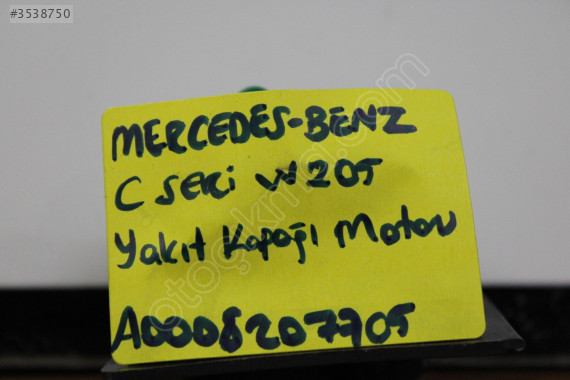 #3538750
MERCEDES-BENZ
C SERİ W205
Yakıt Kapağı Motoru
A0008207705
otocikma.com